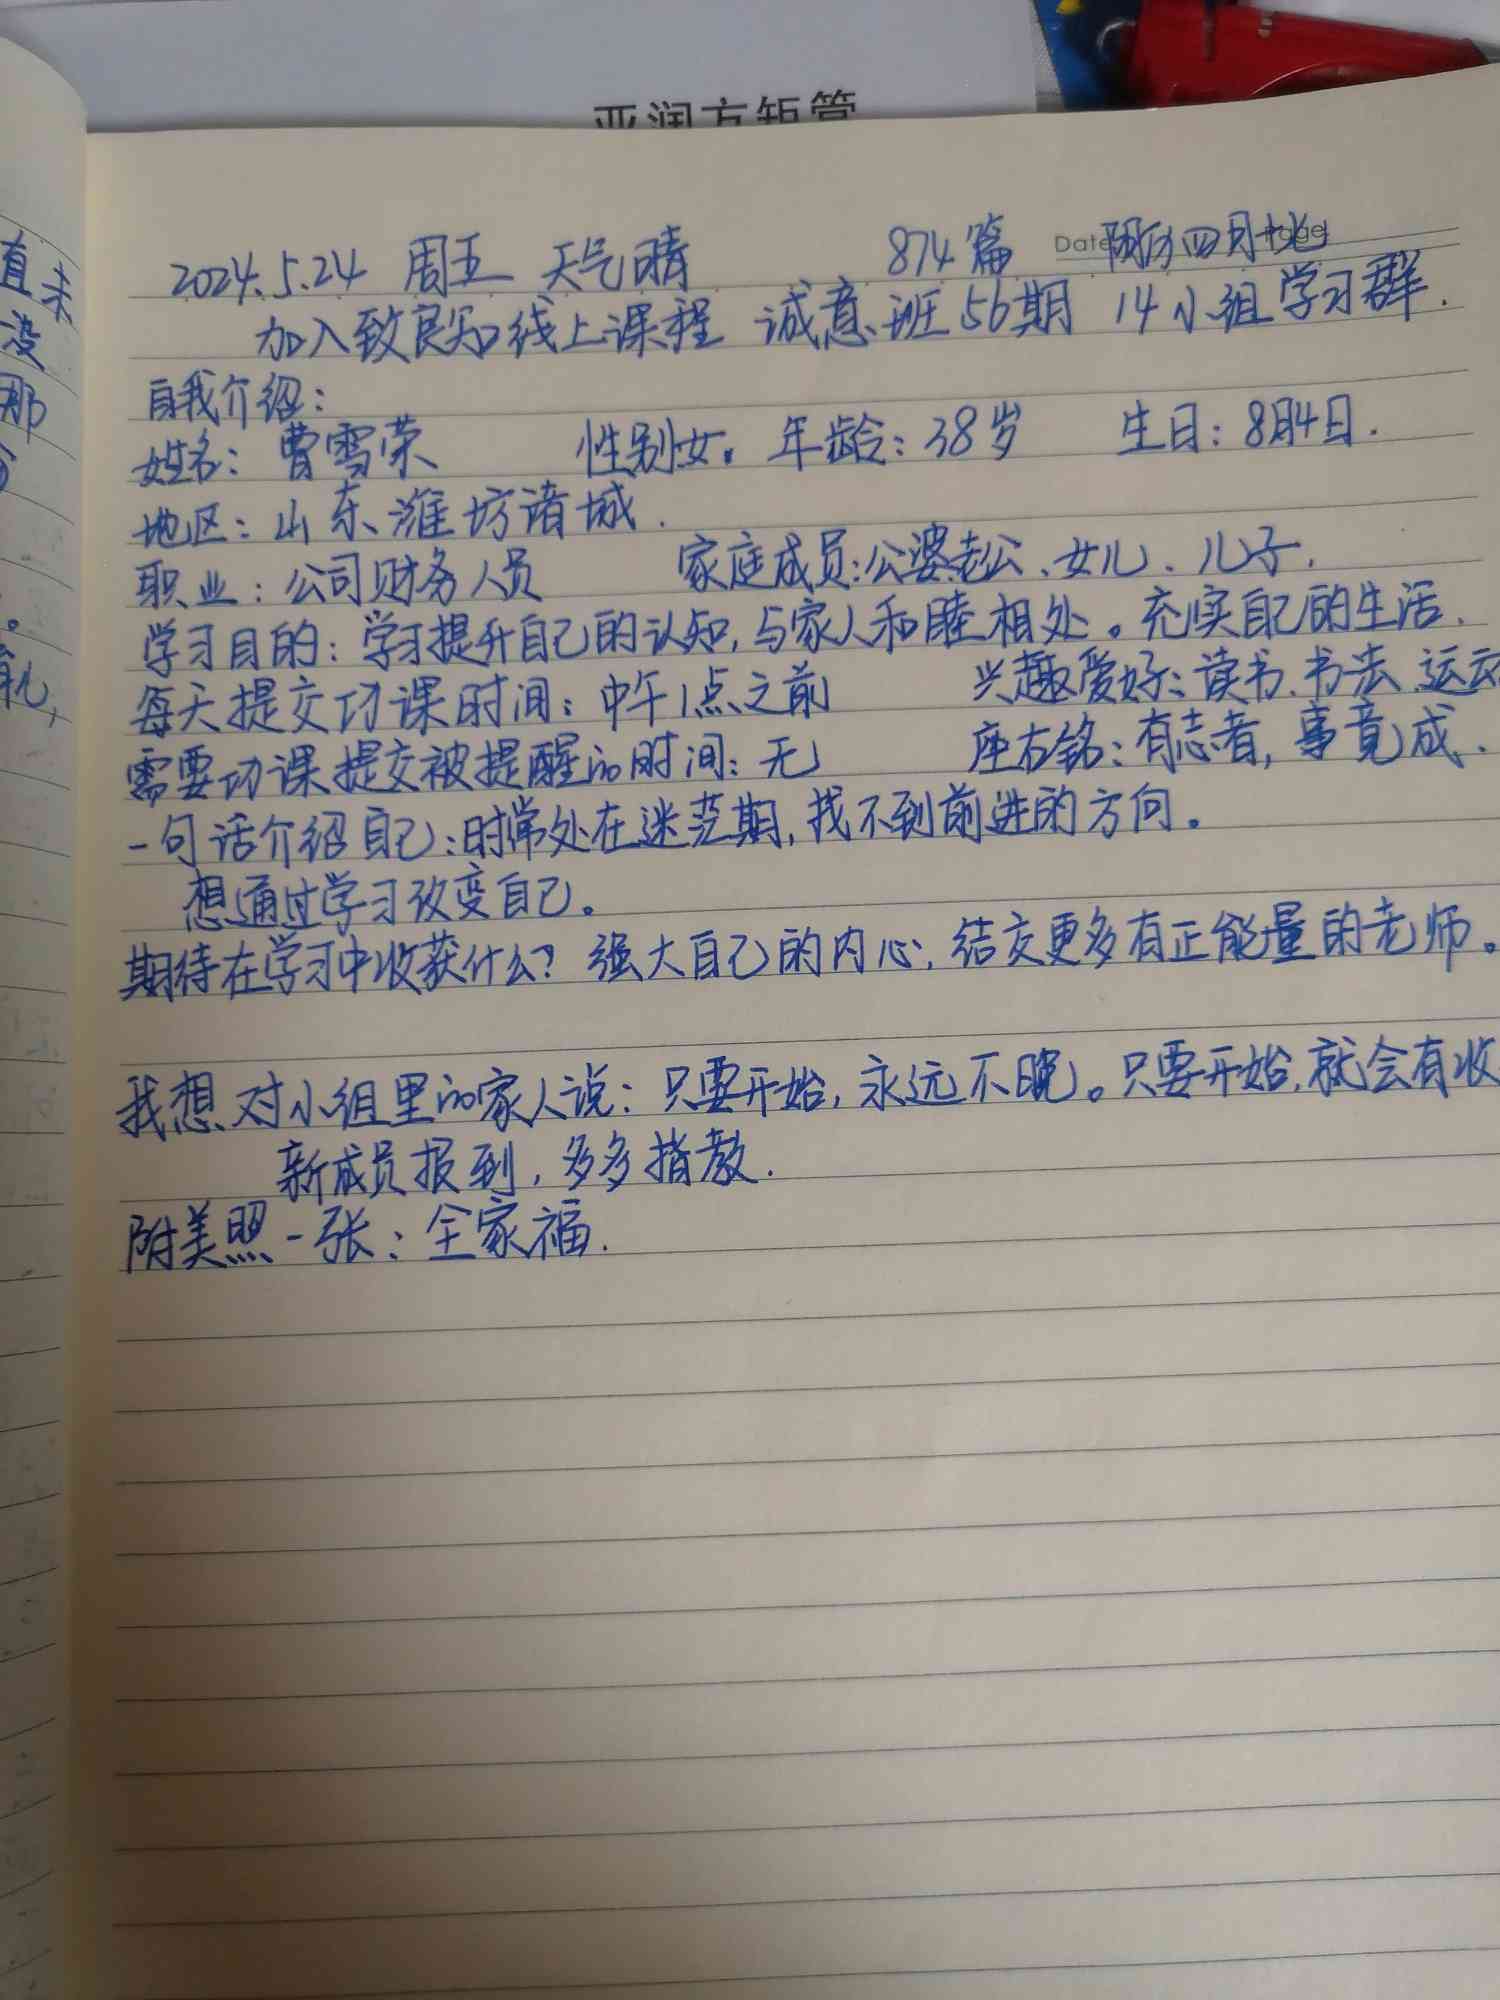 亚润方矩管
2024.5.24 周五 天气晴 874篇 Date 阴历四月十七
加入致良知线上课程 诚意班56期 14小组学习群.
自我介绍:
姓名: 曹雪荣 性别女。年龄:38岁 生日:8月4日.
地区:山东潍坊诸城.
职业:公司财务人员 家庭成员:公婆老公、女儿、儿子.
学习目的:学习提升自己的认知,与家人和睦相处。充实自己的生活.
每天提交功课时间:中午1点之前 兴趣爱好:读书.书法.运动
需要功课提交被提醒的时间:无 座右铭:有志者,事竟成.
一句话介绍自己:时常处在迷茫期,找不到前进的方向。
想通过学习改变自己。
期待在学习中收获什么?强大自己的内心,结交更多有正能量的老师。
我想对小组里的家人说:只要开始,永远不晚。只要开始,就会有收
新成员报到,多多指教.
附美照一张:全家福.
直未
没
那